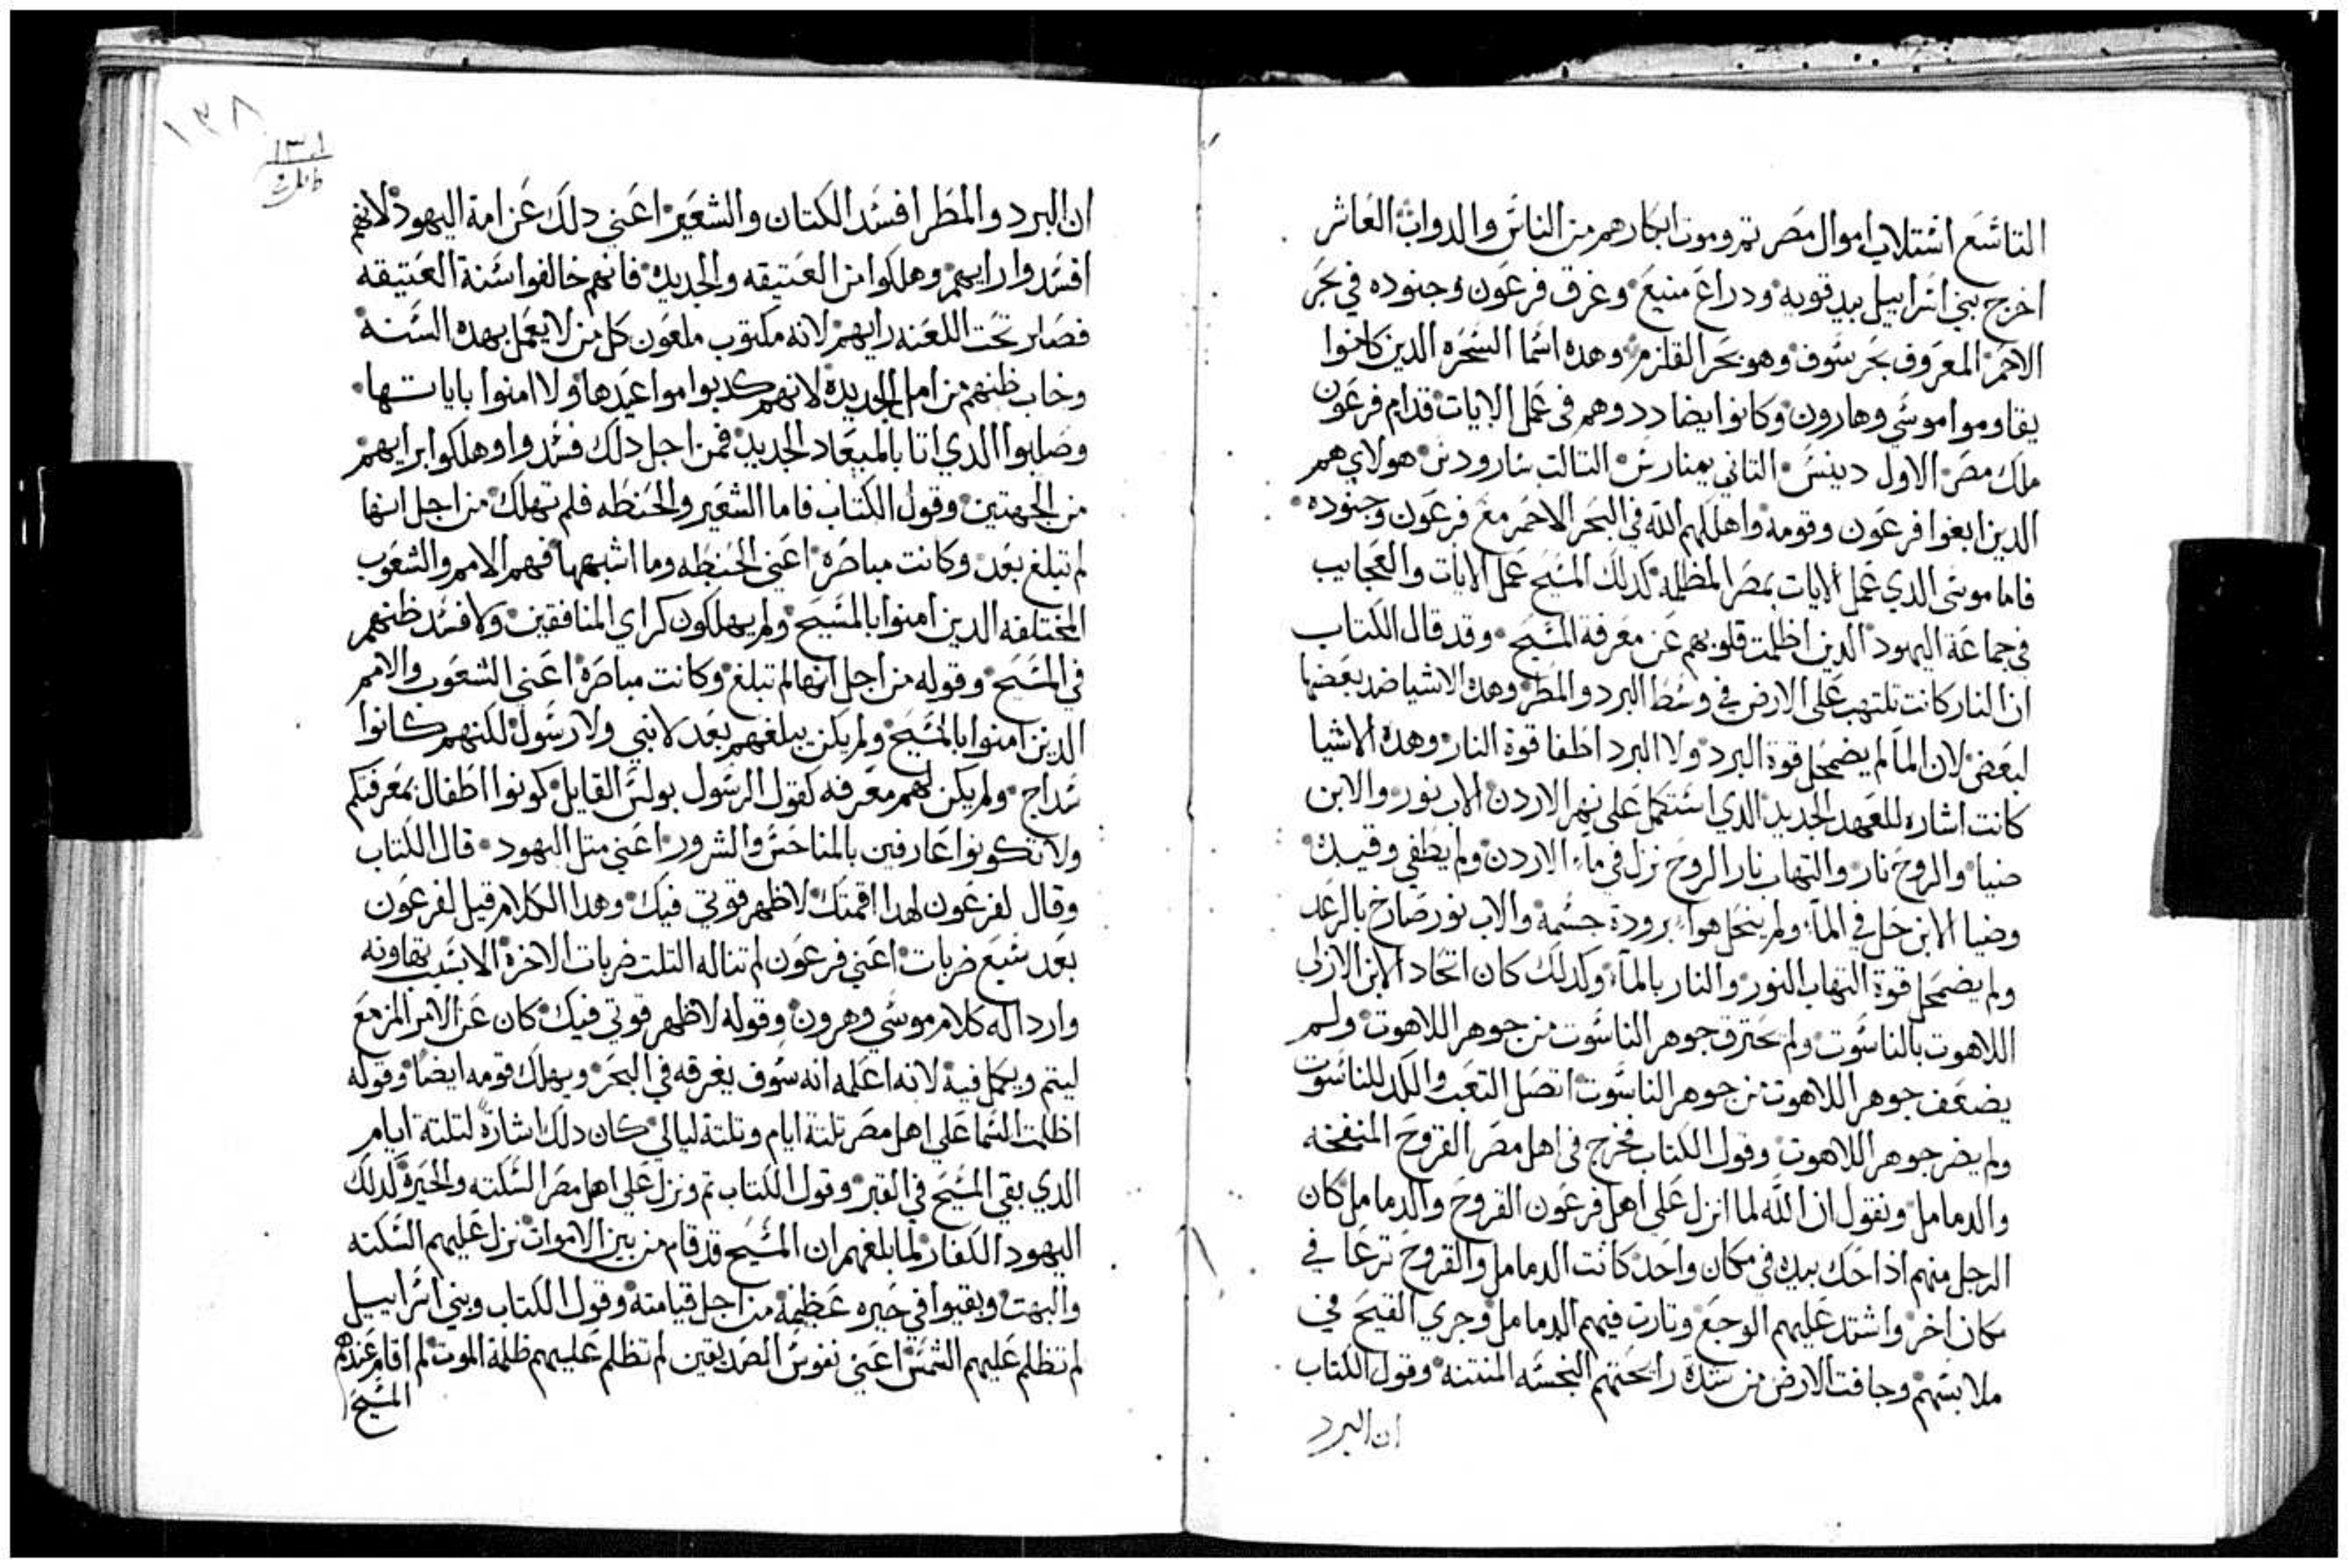 التاسع استلاب اموال مصر تم وموت ابكارهم من الناس والدواب العاشر
اخرج بني اسراييل بيد قويه ودراع منيع وغرق فرعون وجنوده في بحر
الاحمر المعروف بحر سوف وهو بحر القلزم وهده اسما السحره الدين كانوا
يقاوموا موسي وهارون وكانوا يضاددوهم في عمل الايات قدام فرعون
ملك مصر الاول دينس التاني يمنارس التالت سارودس هولاي هم
الدين ابغوا فرعون وقومه واهلكهم الله في البحر الاحمر مع فرعون وجنوده
فاما موسى الدي عمل الايات بمصر المظلمه كدلك المسيح عمل الايات والعجايب
في جماعة اليهود الدين اظلمت قلوبهم عن معرفة المسيح وقد قال الكتاب
ان النار كانت تلتهب على الارض في وسط البرد والمطر وهده الاشيا ضد بعضها
لبعض لان الما لم يضمحل قوة البرد ولا البرد اطفا قوة النار وهده الاشيا
كانت اشاره للعهد الجديد الدي استكمل على نهر الاردن الاب نور والابن
ضيا والروح نار والتهاب نار الروح نزل في ماء الاردن ولم يطفي وقيده
وضيا الابن حل في الماء ولم ينحل هواء برودة جسمه والاب نور صارخ بالرعد
ولم يضمحل قوة التهاب النور والنار بالماء وكدلك كان اتحاد الابن الازلي
اللاهوت بالناسوت ولم يحترق جوهر الناسوت من جوهر اللاهوت ولم
يضعف جوهر اللاهوت من جوهر الناسوت اتصل التعب والكد للناسوت
ولم يضر جوهر اللاهوت وقول الكتاب فخرج في اهل مصر القروح المنفخه
والدمامل ونقول ان الله لما انزل على اهل فرعون القروح والدمامل كان
الرجل منهم ادا حك بيده في مكان واحد كانت الدمامل والقروح ترعا في
مكان اخر واشتد عليهم الوجع وتارت فيهم الدمامل وجري القيح في
ملابسهم وجافت الارض من شدة رايحتهم النجسه المنتنه وقول الكتاب
ان البرد
١٣٨
ان البرد والمطر افسد الكتان والشعير اعني دلك عن امة اليهود لانهم
افسدوا رايهم وهلكوا من العتيقه والجديده فانهم خالفوا سنة العتيقه
فصار تحت اللعنه رايهم لانه مكتوب ملعون كل من لا يعمل بهده السنه
وخاب ظنهم من امل الجديده لانهم كدبوا مواعيدها ولا امنوا باياتها
وصلبوا الدي اتا بالميعاد الجديد فمن اجل دلك فسدوا وهلكوا برايهم
من الجهتين وقول الكتاب فاما الشعير والحنطه فلم تهلك من اجل انها
لم تبلغ بعد وكانت مباصره اعني الحنطه وما اشبهها فهم الامم والشعوب
المختلفه الدين امنوا بالمسيح ولم يهلكون كراي المنافقين ولا فسد ظنهم
في المسيح وقوله من اجل انها لم تبلغ وكانت مباصره اعني الشعوب والامم
الدين امنوا بالمسيح ولم يكن يبلغهم بعد لا نبي ولا رسول لكنهم كانوا
سداج ولم يكن لهم معرفه كقول الرسول بولس القايل كونوا اطفال بمعرفتكم
ولا تكونوا عارفين بالمناحس والشرور اعني متل اليهود قال الكتاب
وقال لفرعون لهدا اقمتك لاظهر قوتي فيك وهدا الكلام قيل لفرعون
بعد سبع ضربات اعني فرعون لم تناله التلت ضربات الاخرة الا بسبب تهاونه
وارداله كلام موسي وهرون وقوله لاظهر قوتي فيك كان عن الامر المزمع
ليتم ويكمل فيه لانه اعلمه انه سوف يغرقه في البحر ويهلك قومه ايضا وقوله
اظلمت السما على اهل مصر تلتة ايام وتلتة ليالي كان دلك اشارة لتلتة ايام
الدي بقي المسيح في القبر وقول الكتاب تم ونزل على اهل مصر السكته والحيرة كدلك
اليهود الكفار لما بلغهم ان المسيح قد قام من بين الاموات نزل عليهم السكته
والبهت وبقيوا في حيره عظيمة من اجل قيامته وقول الكتاب وبني اسراييل
لم تظلم عليهم الشمس اعني نفوس الصديقين لم تظلم عليهم ظلمة الموت لم اقام عندهم
المسيح